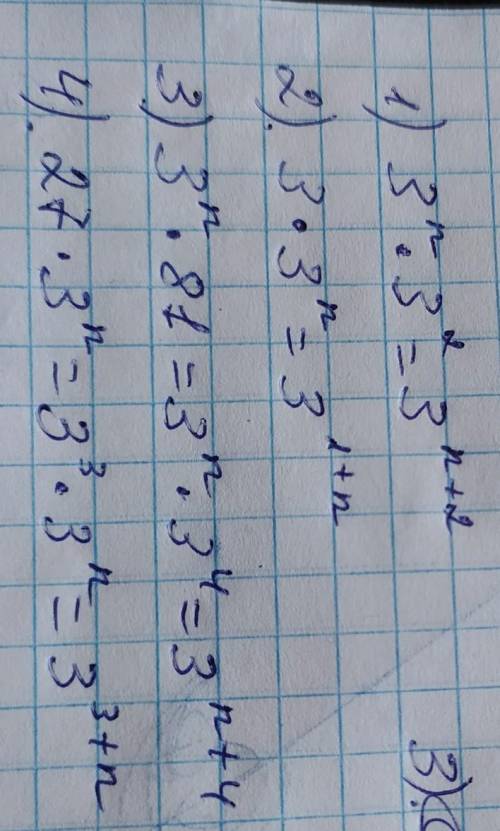 1) 3ⁿ · 3² = 3ⁿ⁺²
2). 3 · 3ⁿ = 3¹⁺ⁿ
3) 3ⁿ · 81 = 3ⁿ · 3⁴ = 3ⁿ⁺⁴
4). 27 · 3ⁿ = 3³ · 3ⁿ = 3³⁺ⁿ
3).